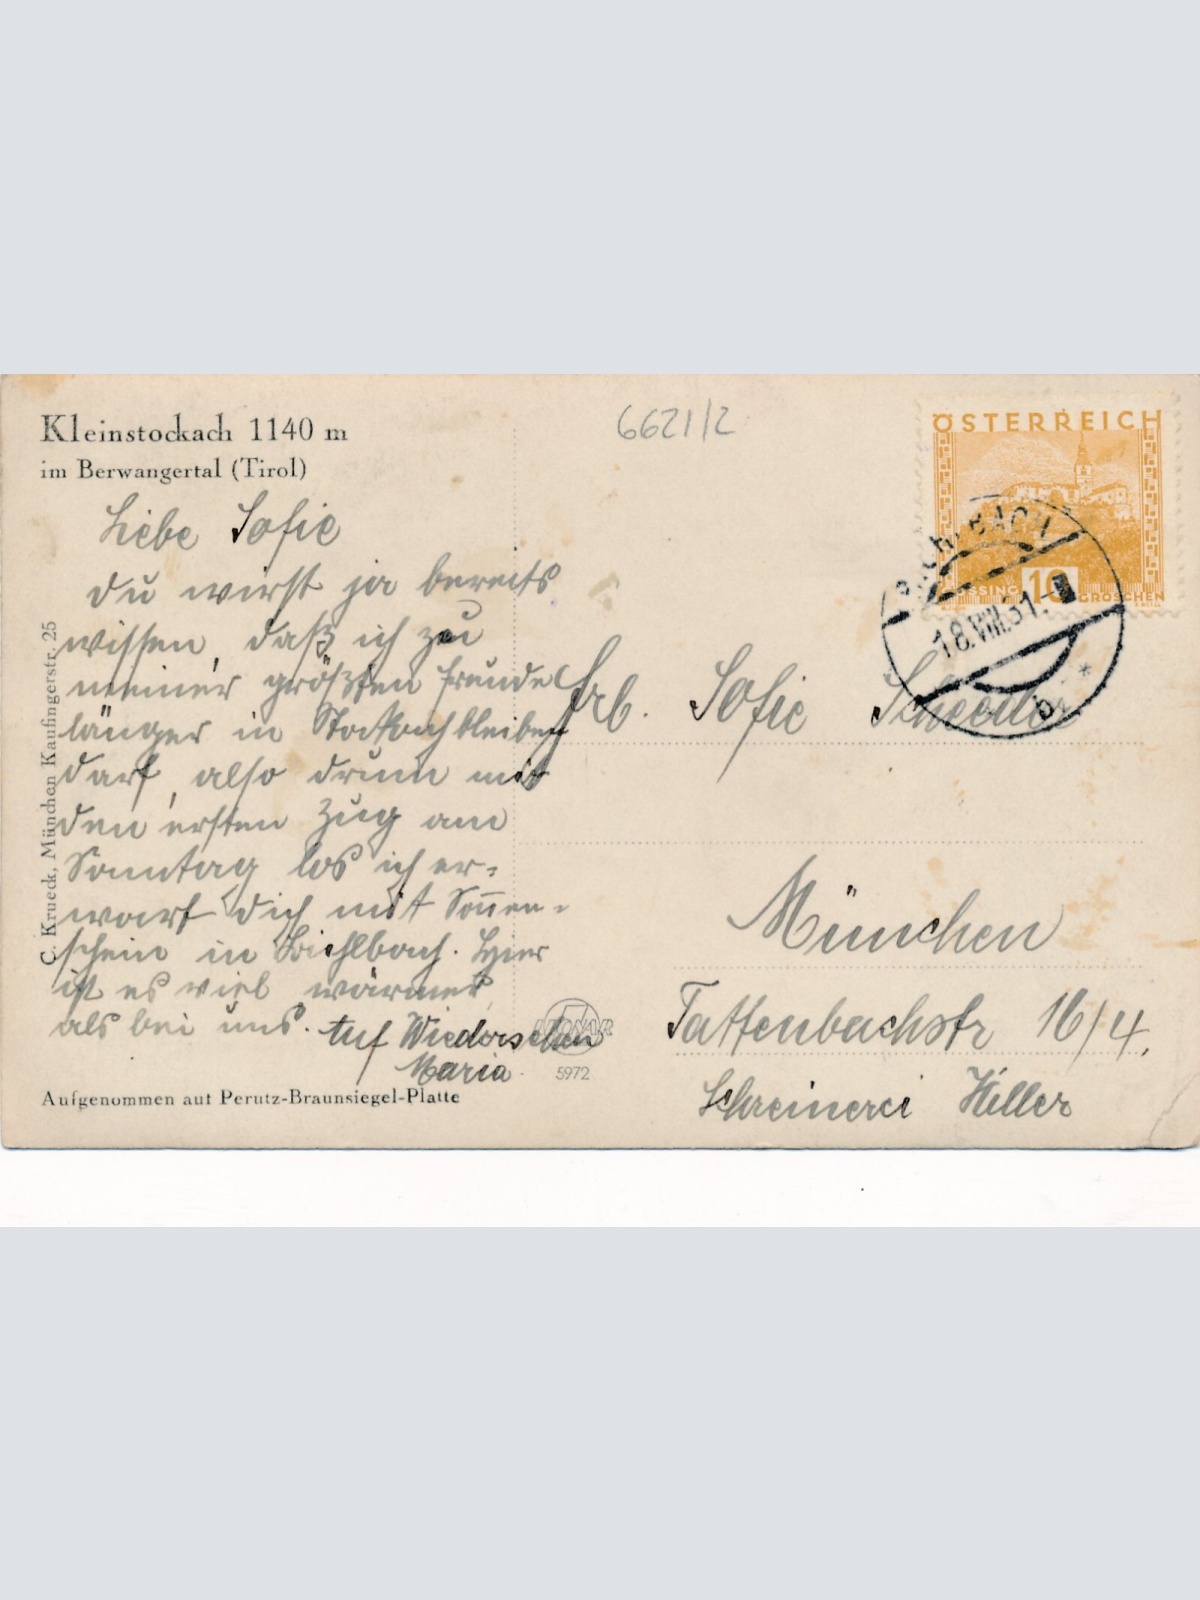 Kleinstockach 1140 m
im Berwangertal (Tirol)
6621/2
ÖSTERREICH
10
GROSCHEN
18.VIII.31
Liebe Sofie
du wirst ja bereits
wissen, daß ich zu
meiner größten Freude
länger in Stockach bleiben
darf, also drum mit
den ersten Zug am
Sonntag los ich er-
wart dich mit Sonnen-
schein in Bichlbach. Hier
ist es viel wärmer
als bei uns. Auf Wiedersehen
Maria
Aufgenommen auf Perutz-Braunsiegel-Platte
C. Krueck, München Kaufingerstr. 25
5972
Frl. Sofie
München
Tattenbachstr 16/4.
Schreinerei Hiller